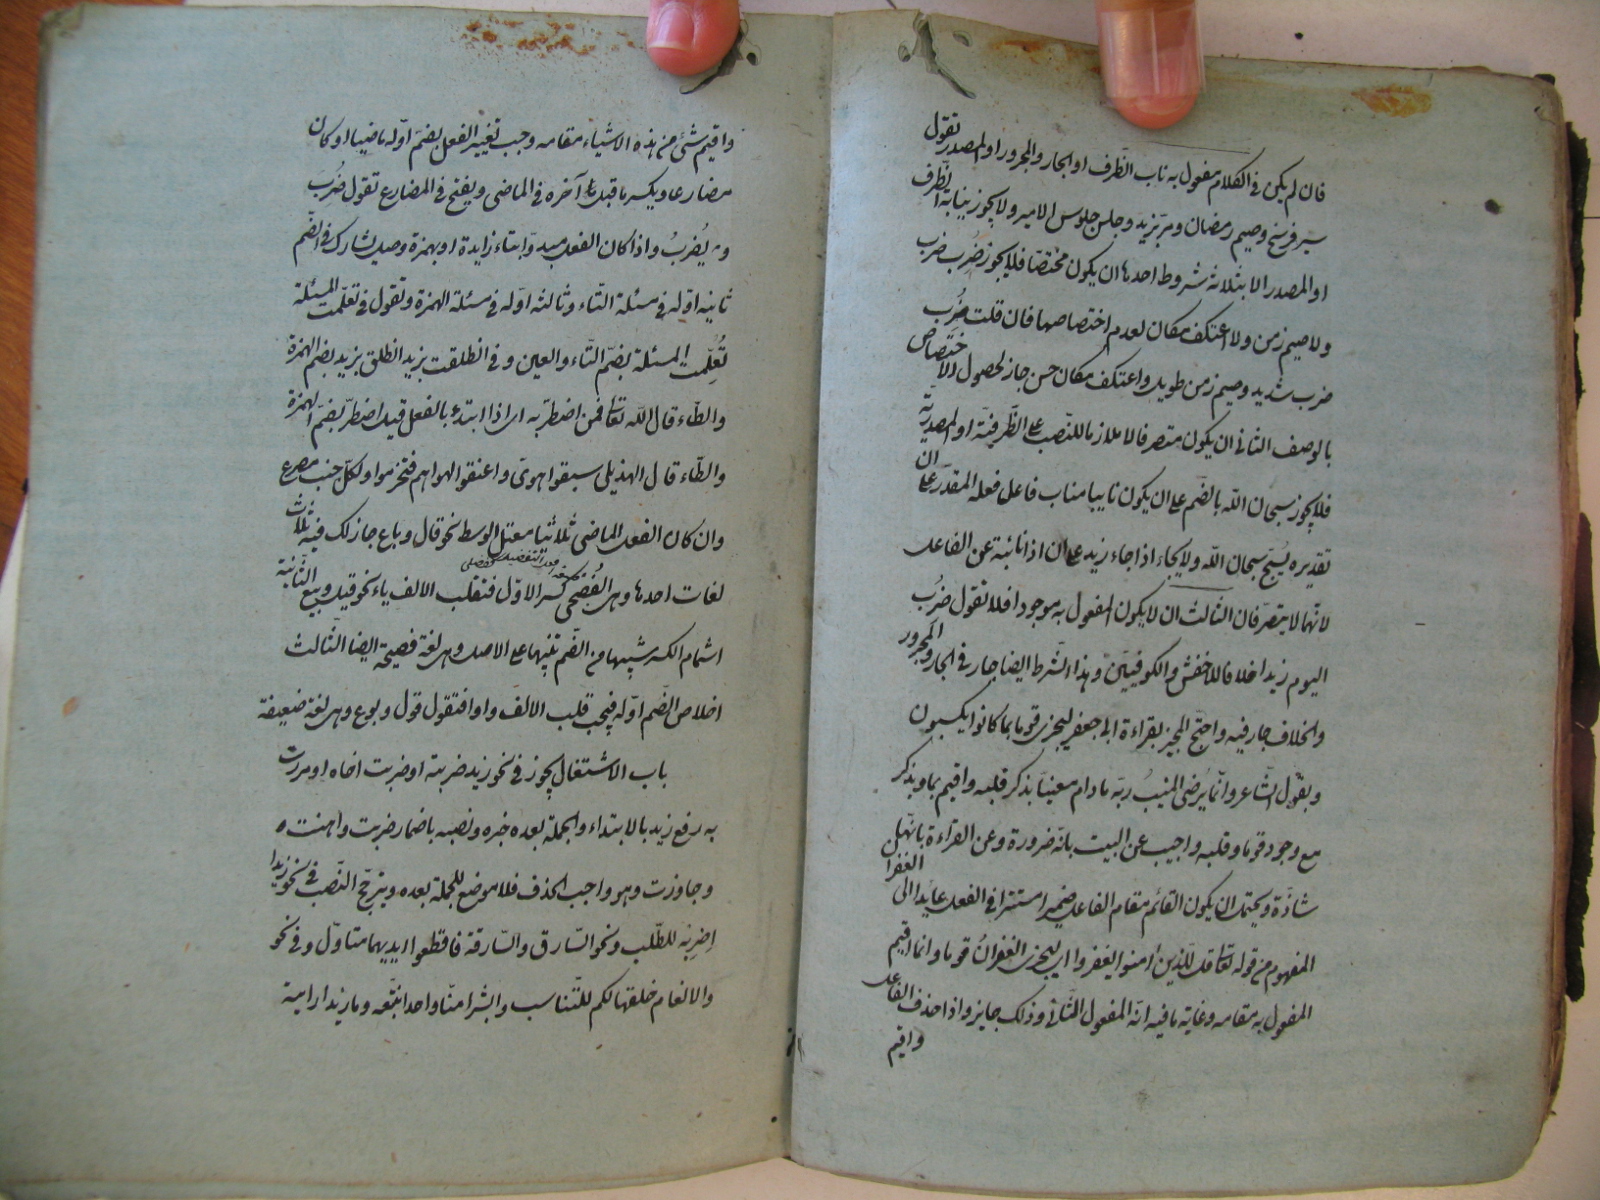 فان لم يكن في الكلام مفعول به ناب الظّرف او الجار والمجرور او المصدر تقول
سير فرسخ وصيم رمضان ومرّ بزيد وجلس جلوس الامير ولا يجوز نيابة الظّرف
او المصدر الا بثلاثة شروط احدها ان يكون مختصّا فلا يجوز ضُرب ضرب
ولا صيم زمن ولا اعتكف مكان لعدم اختصاصها فان قلت ضُرب
ضرب شديد وصيم زمن طويل واعتكف مكان حسن جاز لحصول الاختصاص
بالوصف الثاني ان يكون متصرفا لا ملازما للنّصب على الظّرفيّة او المصدريّة
فلا يجوز سبحان اللّه بالضّم على ان يكون نايبا مناب فاعل فعله المقدّر على ان
تقديره يُسبّح سبحان اللّه ولا يجاء اذا جاء زيد على ان اذا نائبة عن الفاعل
لانّهما لا يتصرّفان الثالث ان لا يكون المفعول به موجودا فلا تقول ضُرب
اليوم زيدا خلافا للاخفش والكوفيّين وهذا الشّرط ايضا جار في الجار والمجرور
والخلاف جار فيه واحتجّ المجيز بقراءة ابي جعفر ليجزى قوما بما كانوا يكسبون
وبقول الشّاعر وانّما يُرضي المنيبُ ربّه ما دام معينا بذكر قلبه واقيم بما وبذكر
مع وجود قوما وقلبه واجيب عن البيت بانّه ضرورة وعن القراءة بانّها
شاذّة ويحتمل ان يكون القائم مقام الفاعل ضميرا مستترا في الفعل عايدا الى الغفران
المفهوم من قوله تعالى قل للّذين امنوا يغفروا اي ليجزى الغفرانُ قوما وانما اقيم
المفعول به مقامه وغاية ما فيه انّه المفعول الثّاني وذلك جايز واذا حذف الفاعل
واقيم
واقيم شئ من هذه الاشياء مقامه وجب تغيير الفعل بضمّ اوّله ماضيا او كان
مضارعا ويكسر ما قبل آخره في الماضي ويفتح في المضارع تقول ضُرِب
ويُضرَبُ واذا كان الفعل مبدوّا بتاء زايدة او بهمزة وصل شارك في الضّم
ثانيه اوّله في مسئلة التّاء وثالثه اوّله في مسئلة الهمزة وتقول في تعلّمت المسئلة
تُعُلّمت المسئلة بضمّ التّاء والعين وفي انطلقت بزيد انطلق بزيد بضم الهمزة
والطّاء قال اللّه تعالى فمن اضطرّ به اي اذا ابتدئ بالفعل قيل اضطرّ بضمّ الهمزة
والطّاء قال الهذيلي سبقوا هويّ واعنقوا لهواهم فتخرّموا ولكلّ جنب مصرع
وان كان الفعل الماضي ثلاثيّا معتل الوسط نحو قال وباع جاز لك فيه ثلاث
لغات احدها وهي الفُصحى كسر الاوّل فتقلب الالف ياء نحو قيل وبيع الثّانية
اشمام الكسر شيئا من الضّم تنبيها على الاصل وهي لغة فصيحة ايضا الثّالث
اخلاص الضّم اوّله فيجب قلب الالف واوا فتقول قول وبوع وهي لغة ضعيفة
باب الاشتغال يجوز في نحو زيد ضربته او ضربت اخاه او مررت
به رفع زيد بالابتداء والجملة بعده خبره ونصبه باضمار ضربت واهنت
وجاوزت وهو واجب الحذف فلا موضع للجملة بعده ويترجّح النّصب في نحو زيدا
اضربه للطّلب ونحو السّارق والسّارقة فاقطعوا ايديهما متاوّل وفي نحو
والانعام خلقها لكم للتّناسب وابشرا منّا واحدا نتّبعه وما زيدا رايته